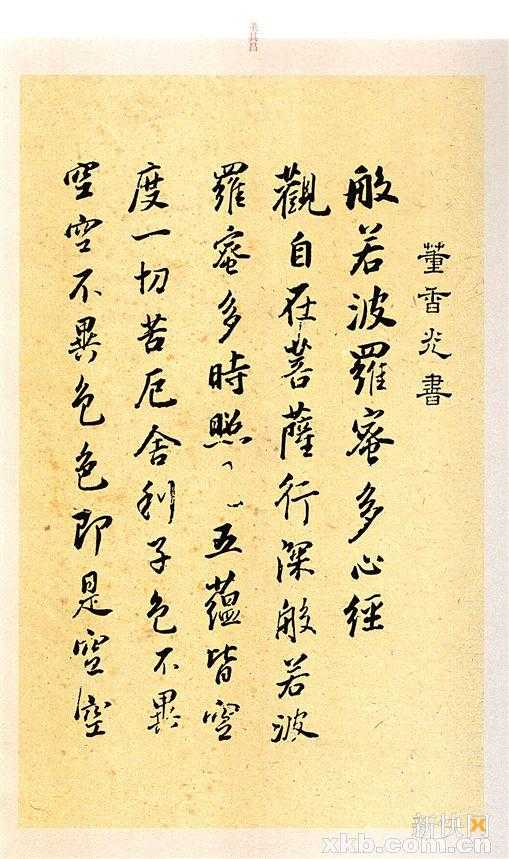 董其昌
董香光書
般若波羅蜜多心經
觀自在菩薩行深般若波
羅蜜多時照五蘊皆空
度一切苦厄舍利子色不異
空空不異色色即是空空
新快网
xkb.com.cn